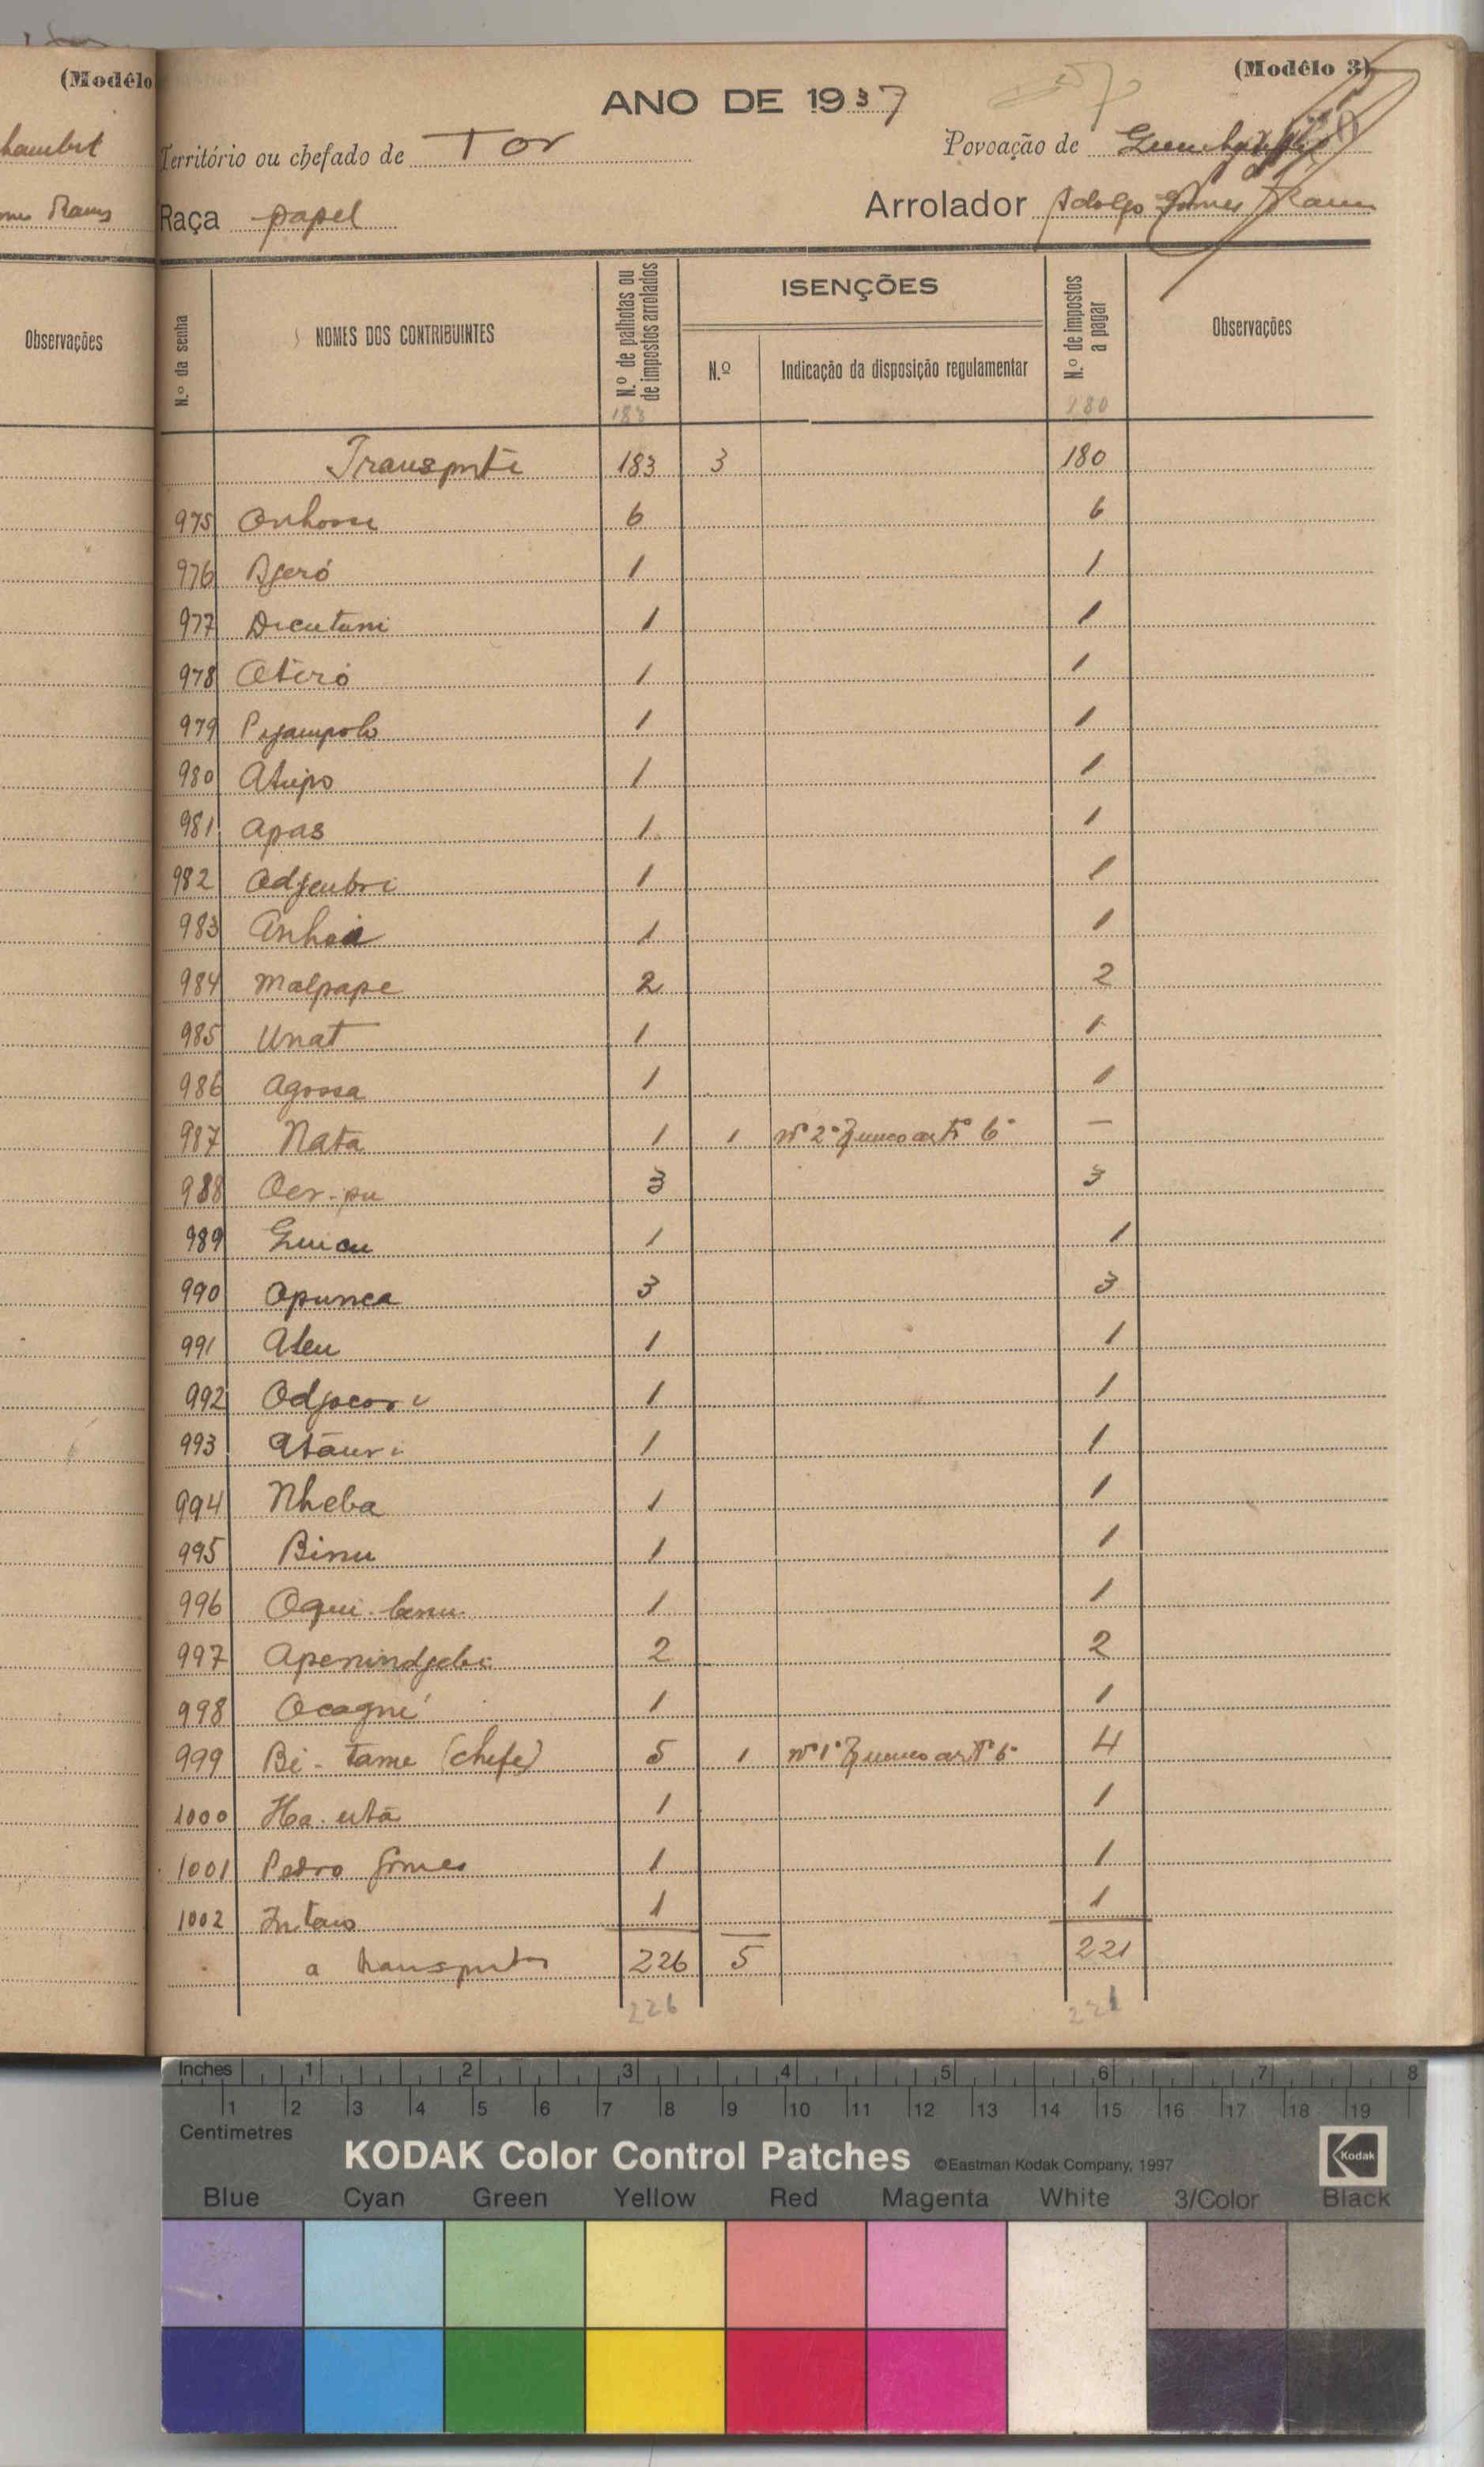 (Modêlo
(Modêlo 3)
ANO DE 1937
Território ou chefado de Tor
Povoação de
Raça papel
Arrolador Adolfo Gomes Ramos
Observações
N.º da senha
NOMES DOS CONTRIBUINTES
N.º de palhotas ou de impostos arrolados
ISENÇÕES
N.º
Indicação da disposição regulamentar
N.º de impostos a pagar
Observações
183 180
Transporte 183 3 180
975 Onhome 6 6
976 Bjeró 1 1
977 Dicutani 1 1
978 Oteró 1 1
979 Pejampolo 1 1
980 Atupo 1 1
981 Apas 1 1
982 Odjeubri 1 1
983 Anhoá 1 1
984 Malpape 2 2
985 Unat 1 1
986 Agossa 1 1
987 Nata 1 1 nº 2º § unico artº 6º —
988 Oer-pu 3 3
989 Guicu 1 1
990 Opunca 3 3
991 Ateu 1 1
992 Odjocori 1 1
993 Atauri 1 1
994 Nheba 1 1
995 Binu 1 1
996 Oqui 1 1
997 Apenindjebi 2 2
998 Ocagné 1 1
999 Bi-tame (chefe) 5 1 nº 1º § unico artº 6º 4
1000 Ha-utá 1 1
1001 Pedro Gomes 1 1
1002 Intaio 1 1
a transportar 226 5 221
226 221
Inches 1 2 3 4 5 6 7 8
1 2 3 4 5 6 7 8 9 10 11 12 13 14 15 16 17 18 19
Centimetres
KODAK Color Control Patches ©Eastman Kodak Company, 1997 Kodak
Blue Cyan Green Yellow Red Magenta White 3/Color Black